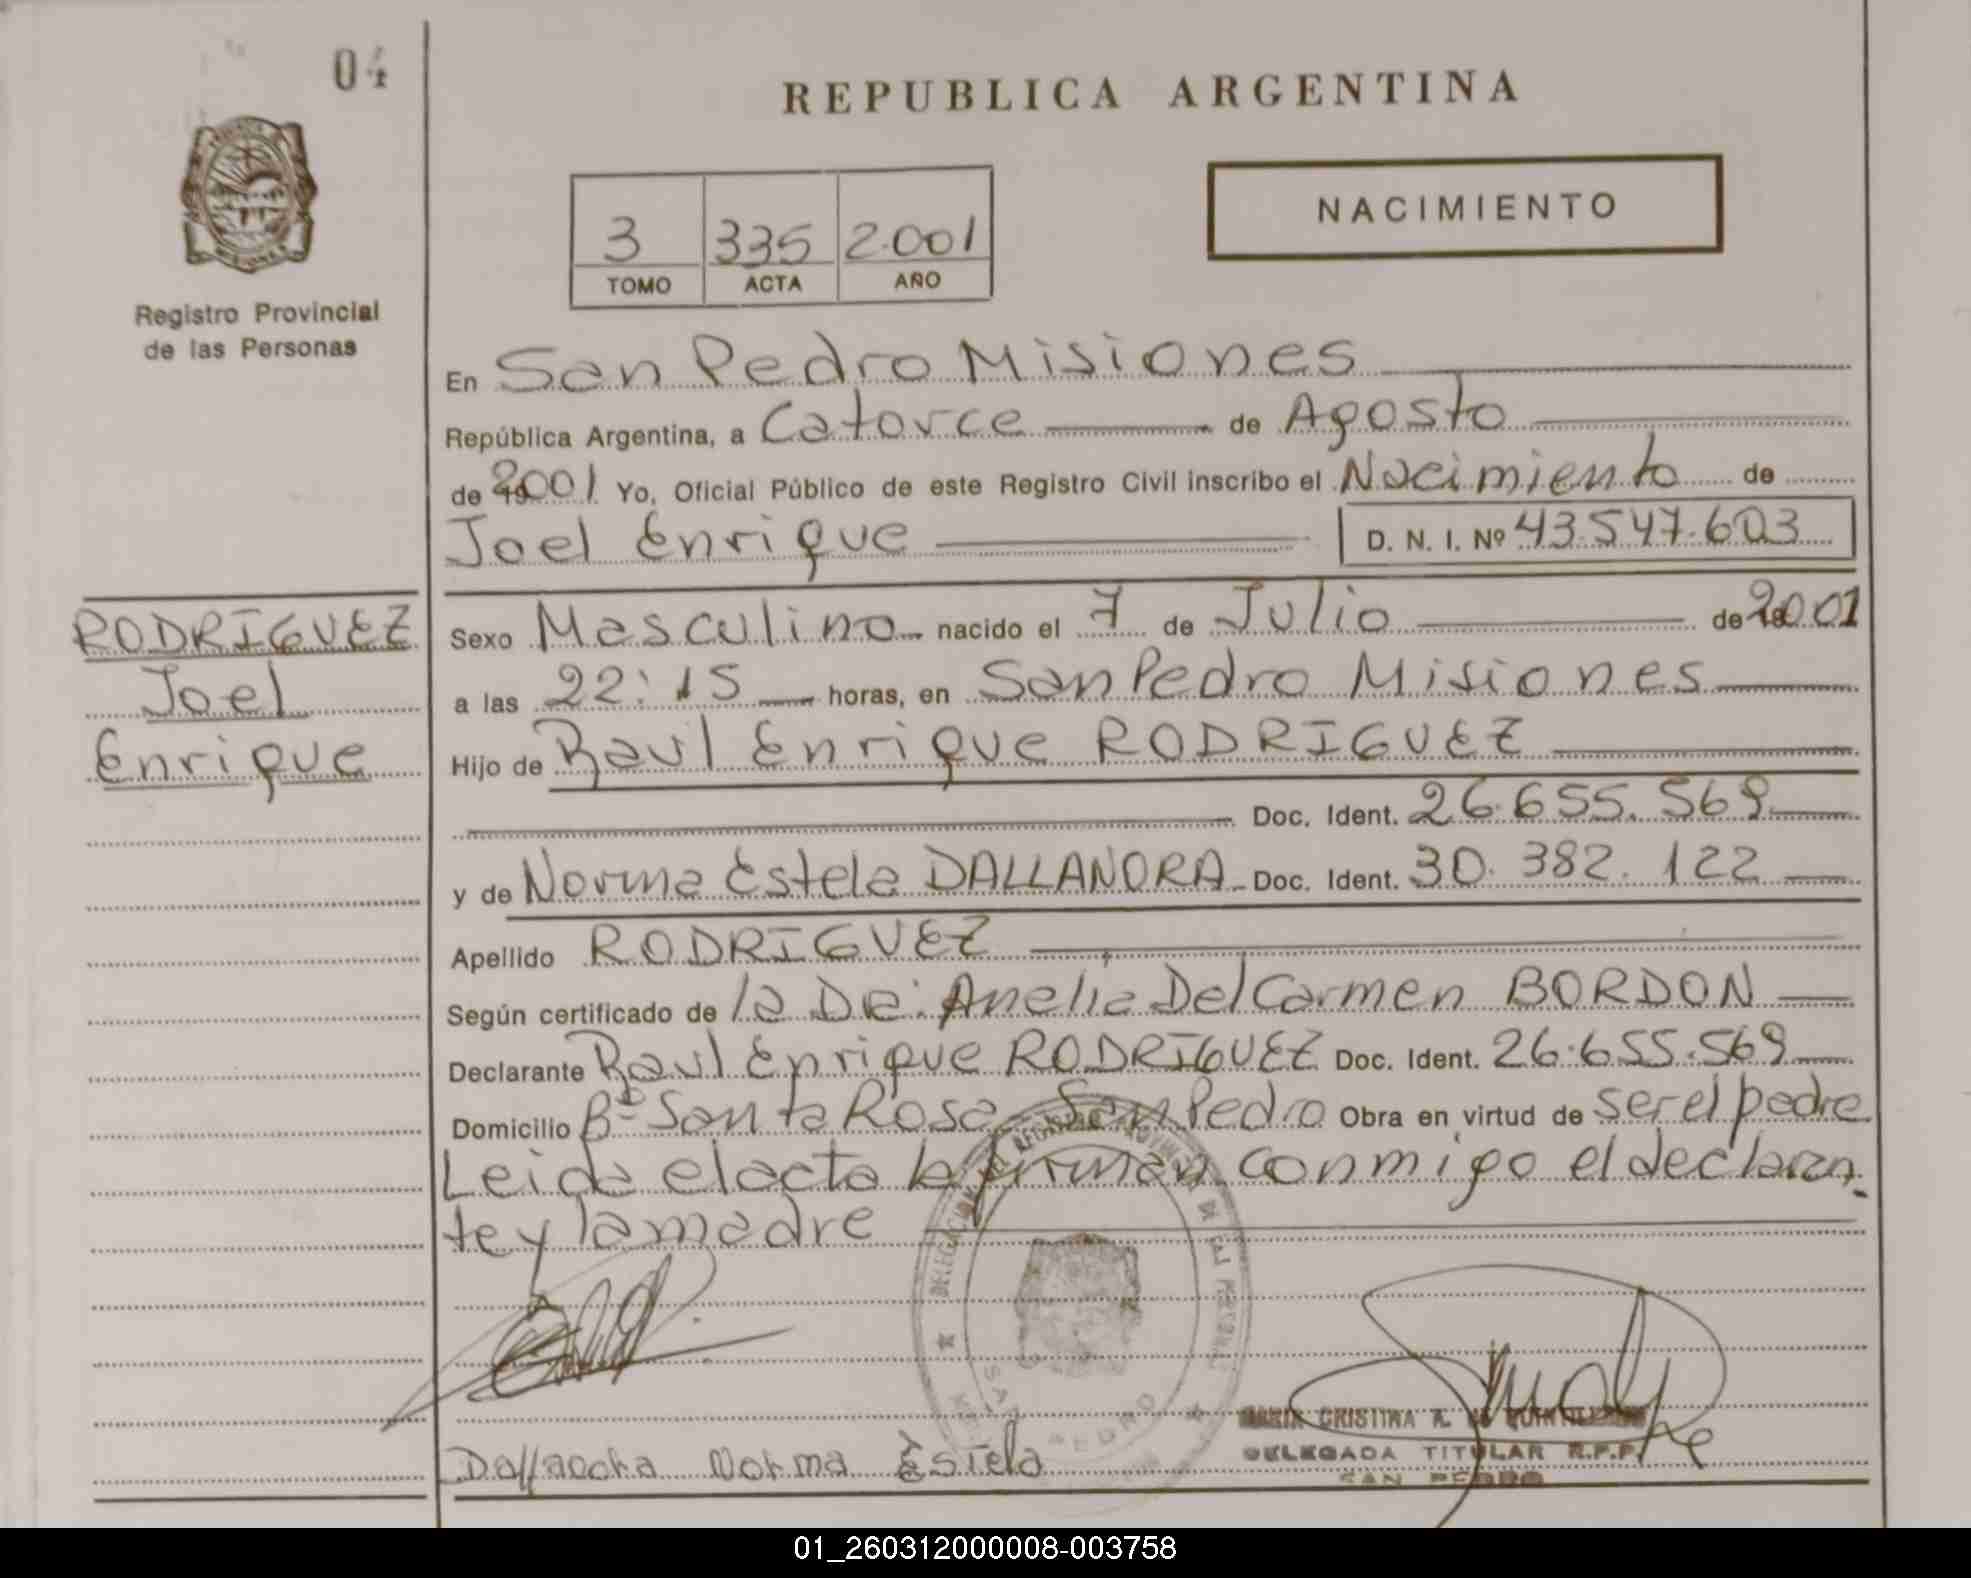 04
REPUBLICA ARGENTINA
3 335 2.001
TOMO ACTA AÑO
NACIMIENTO
Registro Provincial
de las Personas
En San Pedro Misiones
República Argentina, a Catorce de Agosto
de 2001 Yo, Oficial Público de este Registro Civil inscribo el Nacimiento de
Joel Enrique D. N. I. Nº 43.547.603
RODRIGUEZ
Joel
Enrique
Sexo Masculino nacido el 7 de Julio de 2001
a las 22:15 horas, en San Pedro Misiones
Hijo de Raul Enrique RODRIGUEZ
Doc. Ident. 26.655.569
y de Norma Estela DALLANORA Doc. Ident. 30.382.122
Apellido RODRIGUEZ
Según certificado de la Dra. Amelia Del Carmen BORDON
Declarante Raul Enrique RODRIGUEZ Doc. Ident. 26.655.569
Domicilio Bº Santa Rosa San Pedro Obra en virtud de ser el padre
Leida el acta la firman conmigo el declaran
te y la madre
DELEGACION DEL REGISTRO PROVINCIAL DE LAS PERSONAS
SAN PEDRO
Dallanora Norma Estela
MARIA CRISTINA R. DE
DELEGADA TITULAR R.P.P.
SAN PEDRO
01_260312000008-003758